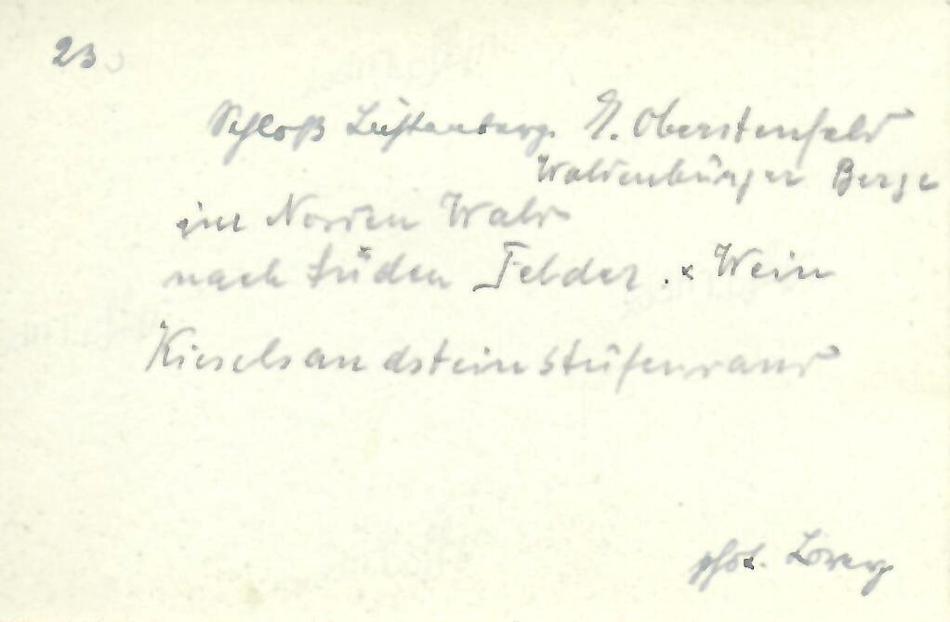 23
Schloß Lichtenberg. G. Oberstenfeld
Waldenburger Berge
im Norden Wald
nach Süden Felder. x Wein
Kieselsandsteinstufenrand
phot.